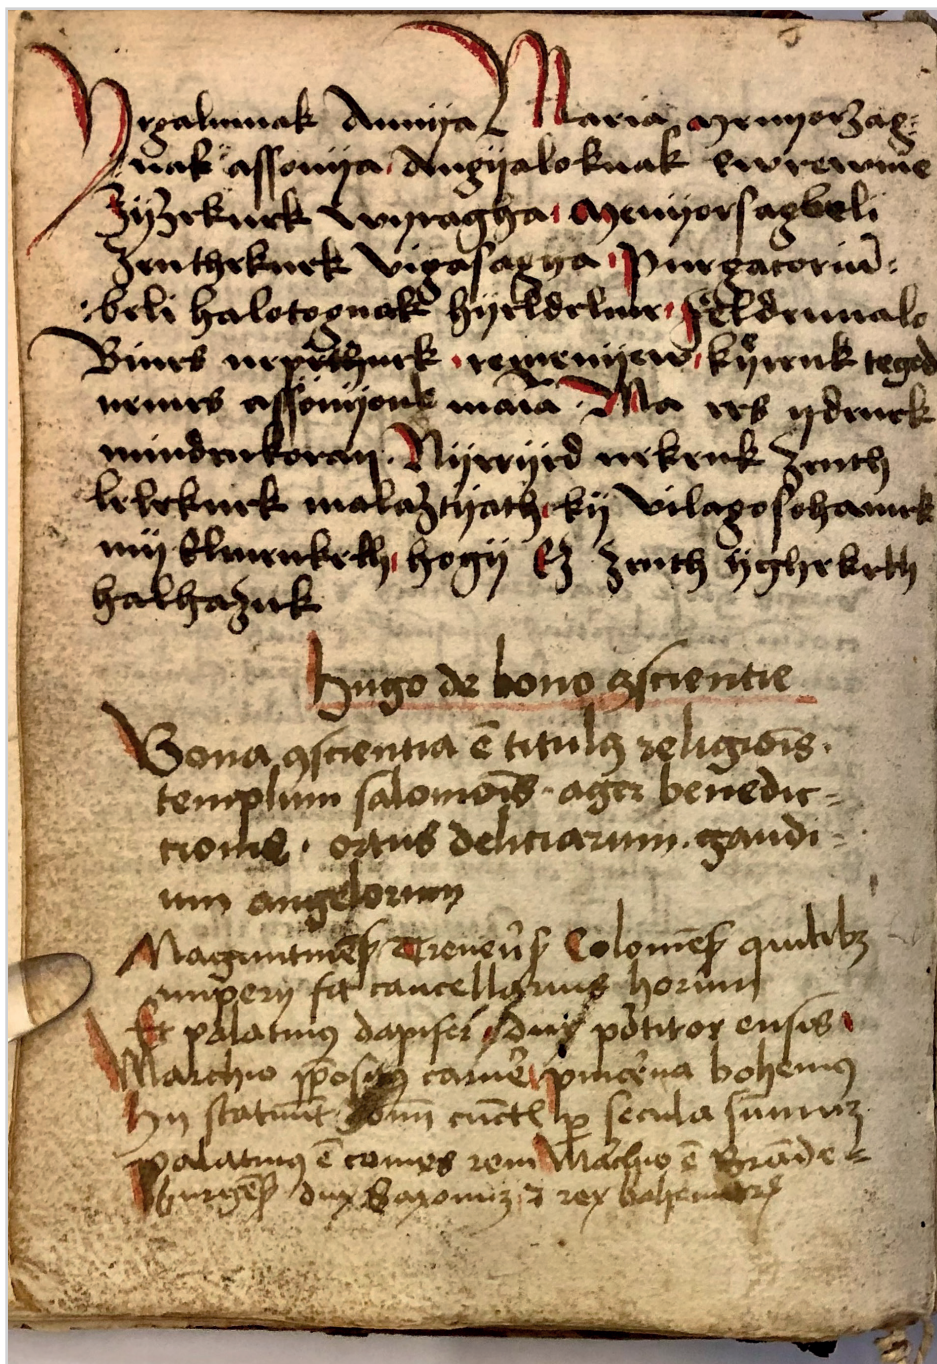 Yrgalumnak Annyia Maria Menyorzag⸗
nak assonya Angyaloknak ewrewme
Zyzeknek wyragha Menyorsagbeli
Zentheknek vigasagya Purgatoriū⸗
beli halotognak hyeldelme feldenvalo
Bines nepethnek remenyew kyrenk teged
nemes assonyonk maria Ma ees ydenek
mindenkoran Nyeryed nekenk Zenth
leleknek malaztyath ky vilagosohamek
my elmenketh hogy Ez Zenth ygheketh
halhazuk
Hugo de bono ꝯscientie
Bona ꝯscientia ē titulꝰ religiōis
templum salomōis ager benedic⸗
tionis ortus deliciarum gaudi⸗
um angelorum
Maguntineñ Treueñ Coloneñ quilibꝫ
imperij fit cancellarius horum
Et palatinꝰ dapifer dux portitor ensis
Marchio p̄positꝰ camere pincerna bohemꝰ
Hij statuūt dom̄ cūctis ꝑ secula summū
palatinꝰ ē comes reni Marchio ē Brāde⸗
burgeñ dux Saxonie ⁊ rex bohemorū